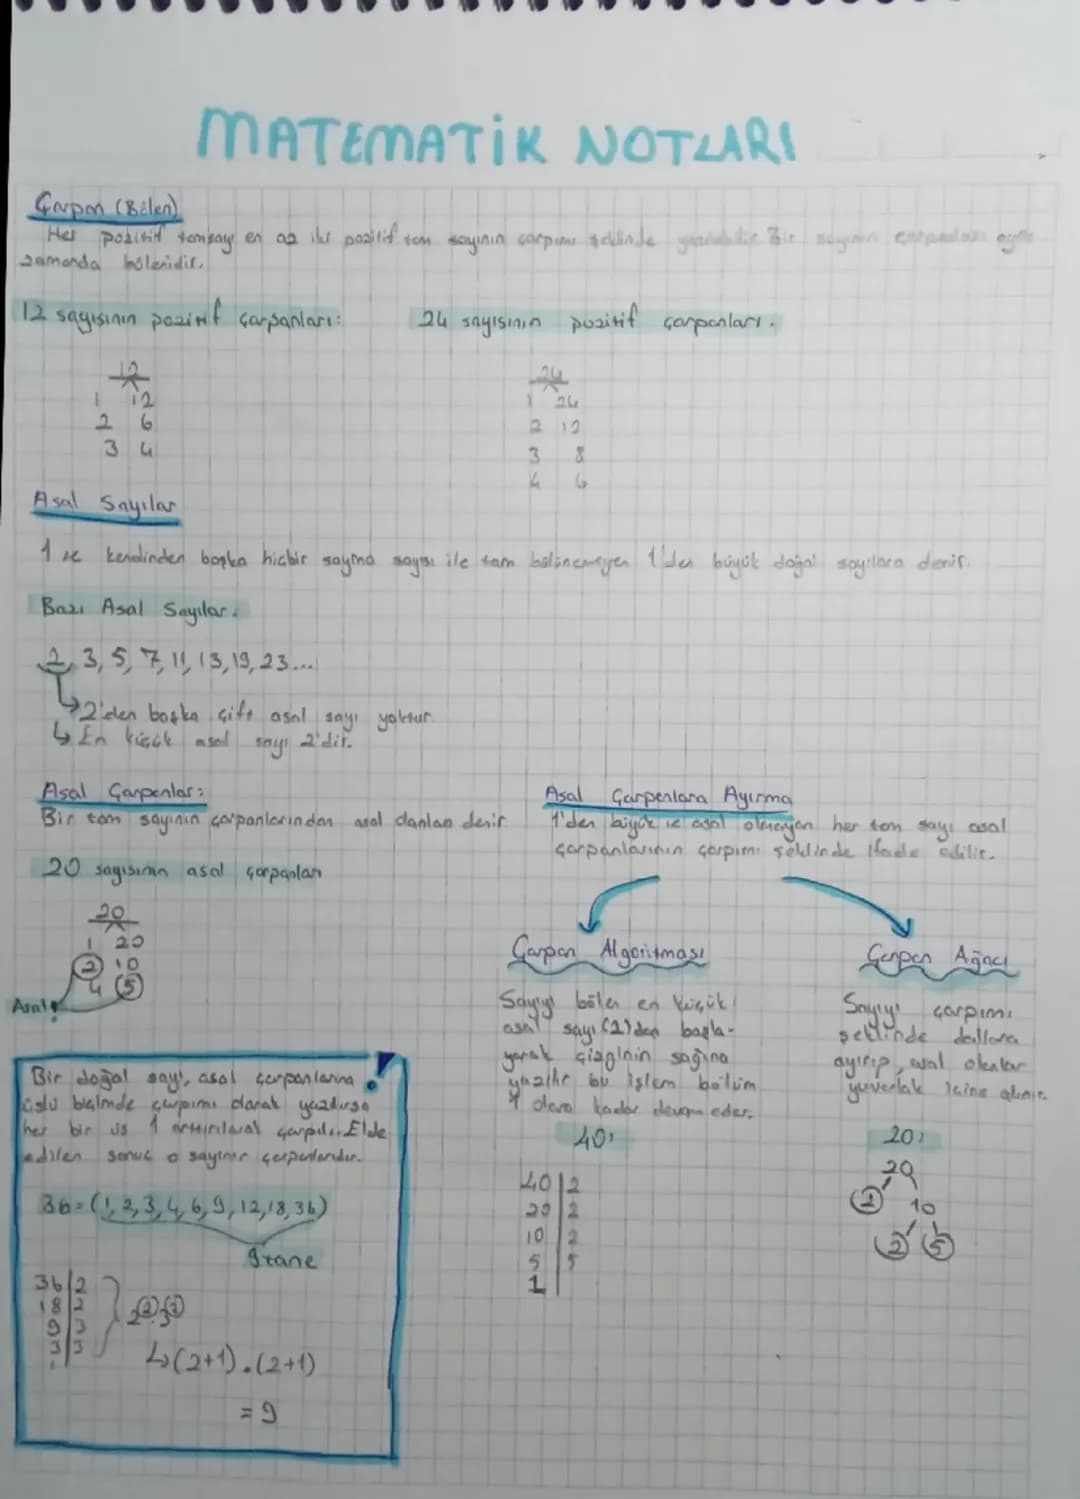 MATEMATİK NOTLARI
Çarpan (Bölen)
Her pozitif tamsayı en az iki pozitif tam sayının çarpımı şeklinde yazılabilir. Bir sayının çarpanları aynı
zamanda bölenidir.
12 sayısının pozitif çarpanları:
12
1 12
2 6
3 4
24 sayısının pozitif çarpanları.
24
1 24
2 12
3 8
4 6
Asal Sayılar
1 ve kendinden başka hiçbir sayma sayısı ile tam bölünemeyen 1'den büyük doğal sayılara denir.
Bazı Asal Sayılar.
2, 3, 5, 7, 11, 13, 19, 23...
2'den başka çift asal sayı yoktur.
↳ En küçük asal sayı 2'dir.
Asal Çarpanlar:
Bir tam sayının çarpanlarından asal olanları denir
20 sayısının asal çarpanları
20
1 20
2 10
4 5
Asal
Asal Çarpanlara Ayırma
1'den büyük ve asal olmayan her tam sayı asal
çarpanlarının çarpımı şeklinde ifade edilir.
Çarpan Algoritması
Sayıyı bölen en küçük
asal sayı (2)'den başla-
yarak çizginin sağına
yazılır bu işlem bölüm
1 olana kadar devam eder.
40:
40 | 2
20 | 2
10 | 2
5 | 5
1 |
Çarpan Ağacı
Sayıyı çarpımı
şeklinde dallara
ayırıp, asal olanlar
yuvarlak içine alınır.
20:
20
2 10
2 5
Bir doğal sayı, asal çarpanlarına
üslü biçimde çarpımı olarak yazılırsa
her bir üs 1 arttırılarak çarpılır. Elde
edilen sonuç o sayının çarpanlarıdır.
36 = (1, 2, 3, 4, 6, 9, 12, 18, 36)
9 tane
36 | 2
18 | 2
9 | 3
3 | 3
1
2² . 3²
↳ (2+1) . (2+1)
= 9